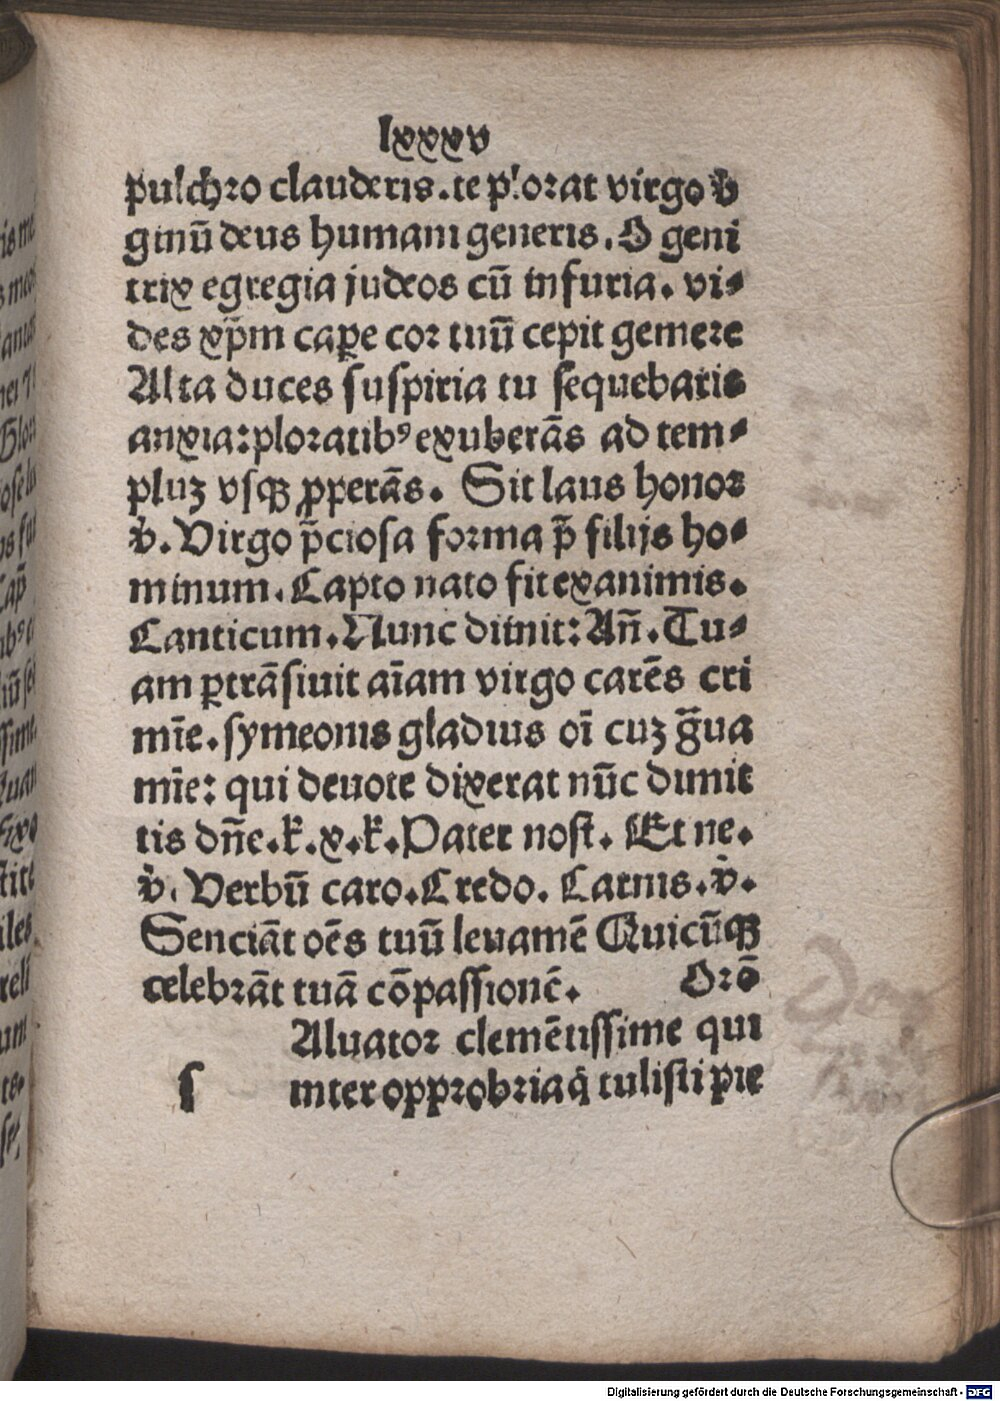 lxxxv
pulchro clauderis. te plorat virgo v̄
ginū deus humani generis. O geni
trix egregia judeos cū in furia. vi⸗
des xp̄m cap̱e cor tuū cepit gemere
Alta duces suspiria tu sequebaris
anxia: ploratibꝰ exuberās ad tem⸗
pluꝫ vsqꝫ ꝓperās. Sit laus honor
v̇. Virgo p̄ciosa forma p̄ filijs ho⸗
minum. Capto nato fit exanimis.
Canticum. Nunc dimit: An̄. Tu⸗
am ꝑtrāsiuit aīam virgo carēs cri
mīe. symeonis gladius oī cuꝫ ḡua
mīe: qui deuote dixerat nūc dimit
tis dn̄e. k̄. x. k̄. Pater nost. Et ne.
v̇. Verbū caro. Credo. Carnis. v̇.
Senciāt oēs tuū leuamē Quicūqꝫ
celebrāt tuā cōpassionē. Orō
Aluator clemētissime qui
s inter opprobria q̄ tulisti pie
is me
Digitalisierung gefördert durch die Deutsche Forschungsgemeinschaft - DFG